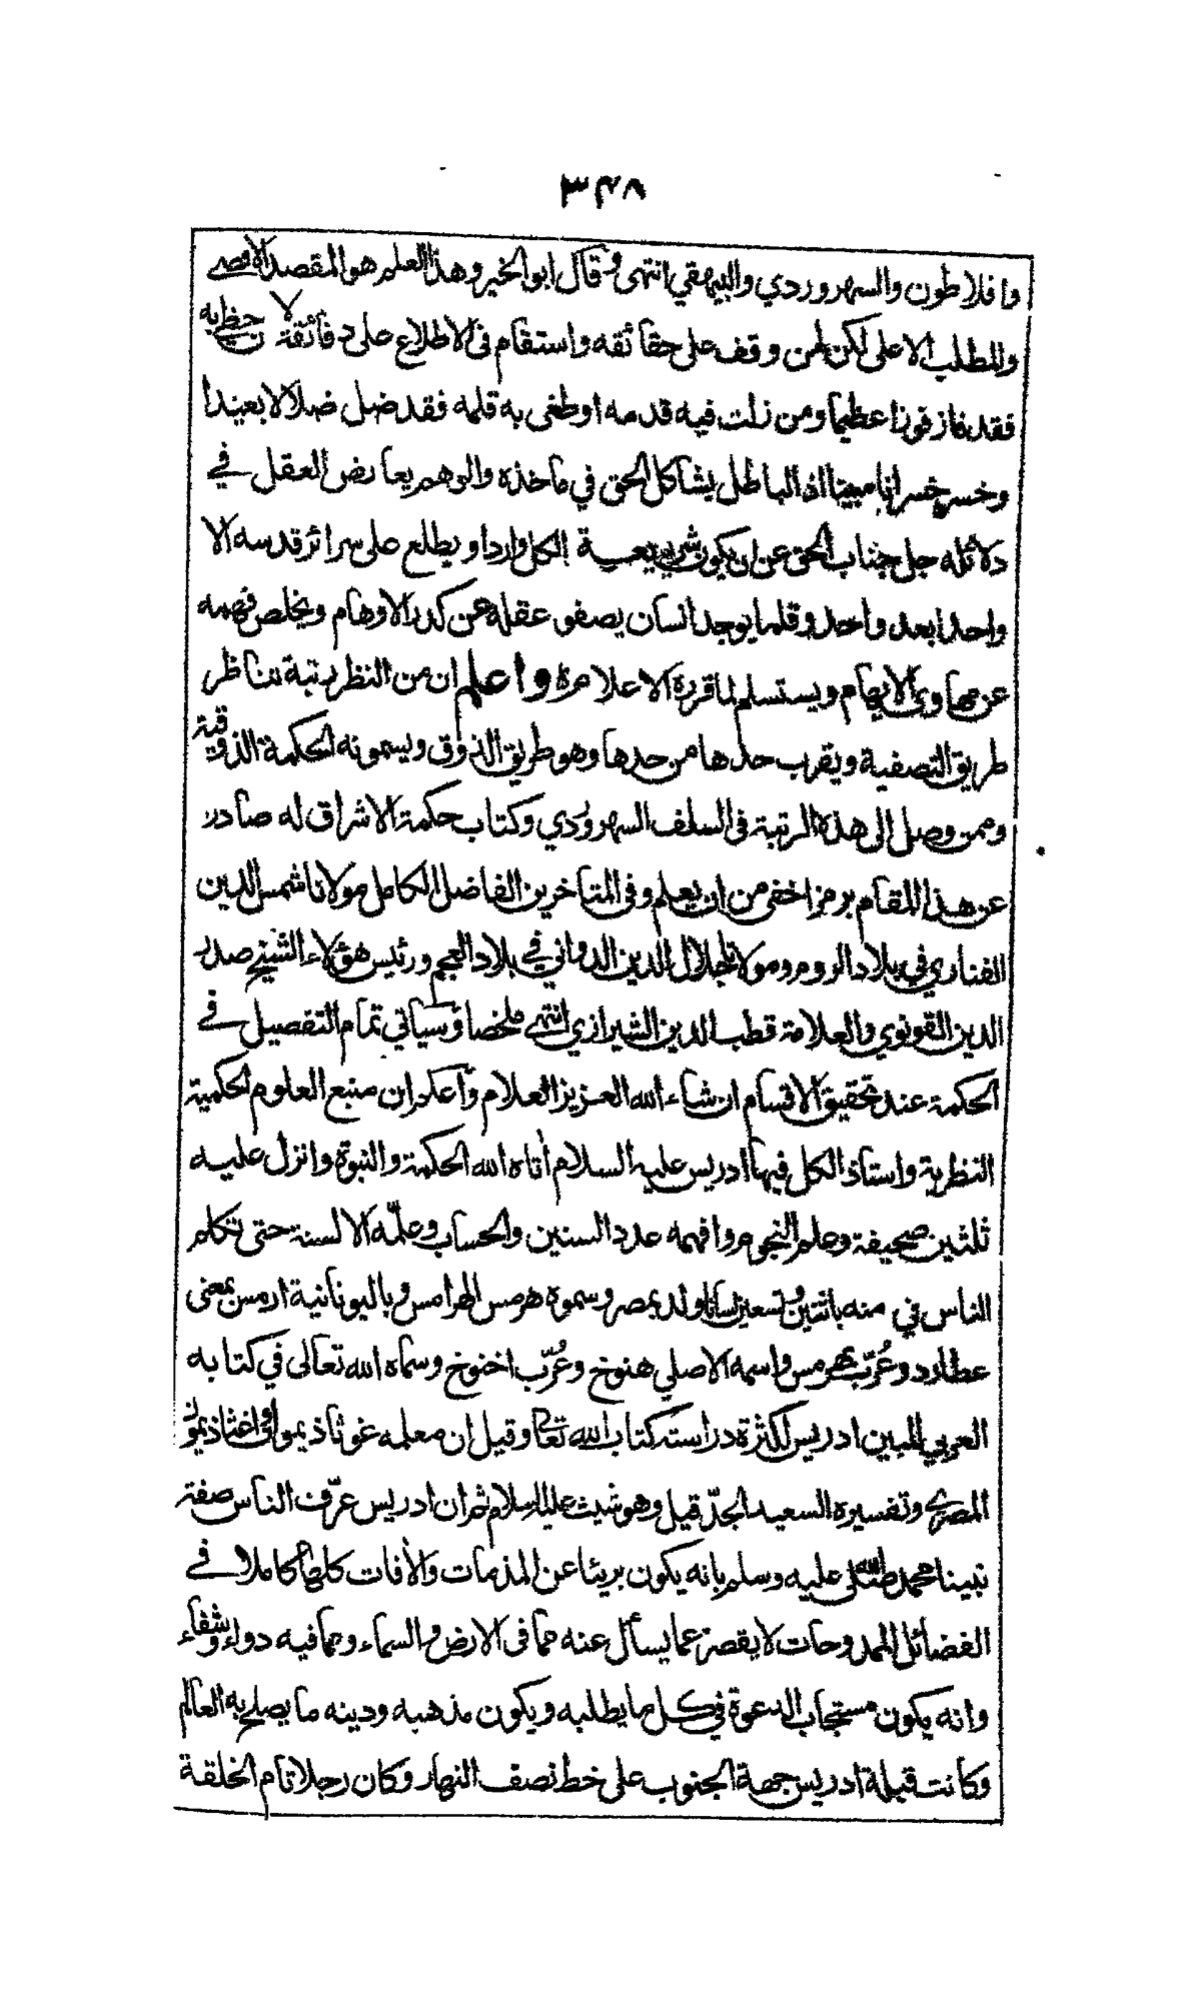 ٣٤٨
وافلاطون والسهروردي والبيهقي انتهى وقال ابو الخير وهذا العلم هو المقصد الاقصى
والمطلب الاعلى لكن لمن وقف على حقائقه واستقام فى الاطلاع على دقائقه لان حظي به
فقد فاز فوزا عظيما ومن زلت فيه قدمه او طغى به قلمه فقد ضل ضلالا بعيدا
وخسر خسرانا مبينا اذ الباطل يشاكل الحق في ماخذه والوهم يعارض العقل في
دلائله جل جناب الحق عن ان يكون شريعة لكل وارد او يطلع على سرائر قدسه الا
واحدا بعد واحد وقلما يوجد انسان يصفو عقله عن كدر الاوهام ويخلص فهمه
عن مهاوى الايهام ويستسلم لما قرره الاعلام واعلم ان من النظر رتبة تناظر
طريق التصفية ويقرب حدها من حدها وهو طريق الذوق ويسمونه الحكمة الذوقية
وممن وصل الى هذه الرتبة فى السلف السهروردي وكتاب حكمة الاشراق له صادر
عن هذا المقام برمز اخفى من ان يعلم وفى المتاخرين الفاضل الكامل مولانا شمس الدين
الفناري في بلاد الروم ومولانا جلال الدين الدواني في بلاد العجم ورئيس هؤلاء الشيخ صدر
الدين القونوي والعلامة قطب الدين الشيرازي انتهى ملخصا وسياتي تمام التفصيل في
الحكمة عند تحقيق الاقسام ان شاء الله العزيز العلام واعلم ان منبع العلوم الحكمية
النظرية واستاذ الكل فيها ادريس عليه السلام أتاه الله الحكمة والنبوة وانزل عليه
ثلثين صحيفة وعلم النجوم وافهمه عدد السنين والحساب وعلّمه الالسنة حتى تكلم
الناس في زمنه باثنين وتسعين لسانا ولد بمصر وسموه هرمس الهرامس وباليونانية ارمس بمعنى
عطارد وعُرّب بهرمس واسمه الاصلي هنوخ وعُرّب اخنوخ وسماه الله تعالى في كتابه
العربي المبين ادريس لكثرة دراسته كتاب الله تعالى وقيل ان معلمه غوثاذيمون او اغثاذيمون
المصري وتفسيره السعيد الجدّ قيل وهو شيث عليه السلام ثم ان ادريس عرّف الناس صفة
نبينا محمد صلى الله عليه وسلم بانه يكون بريئا عن المذمات والأفات كلها كاملا في
الفضائل الممدوحات لا يقصر عما يسأل عنه مما فى الارض والسماء ومما فيه دواء وشفاء
وانه يكون مستجاب الدعوة في كل ما يطلبه ويكون مذهبه ودينه ما يصلح به العالم
وكانت قبلة ادريس جهة الجنوب على خط نصف النهار وكان رجلا تام الخلقة